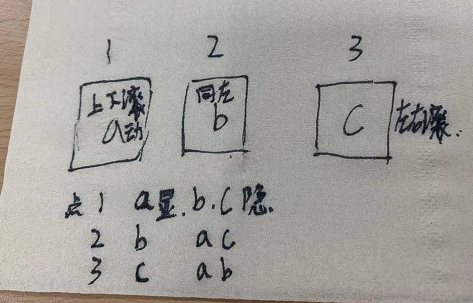 1 2 3
上下滚 同左
a动 b c 左右滚.
点 1 a显.b.c隐.
2 b a c
3 c a b